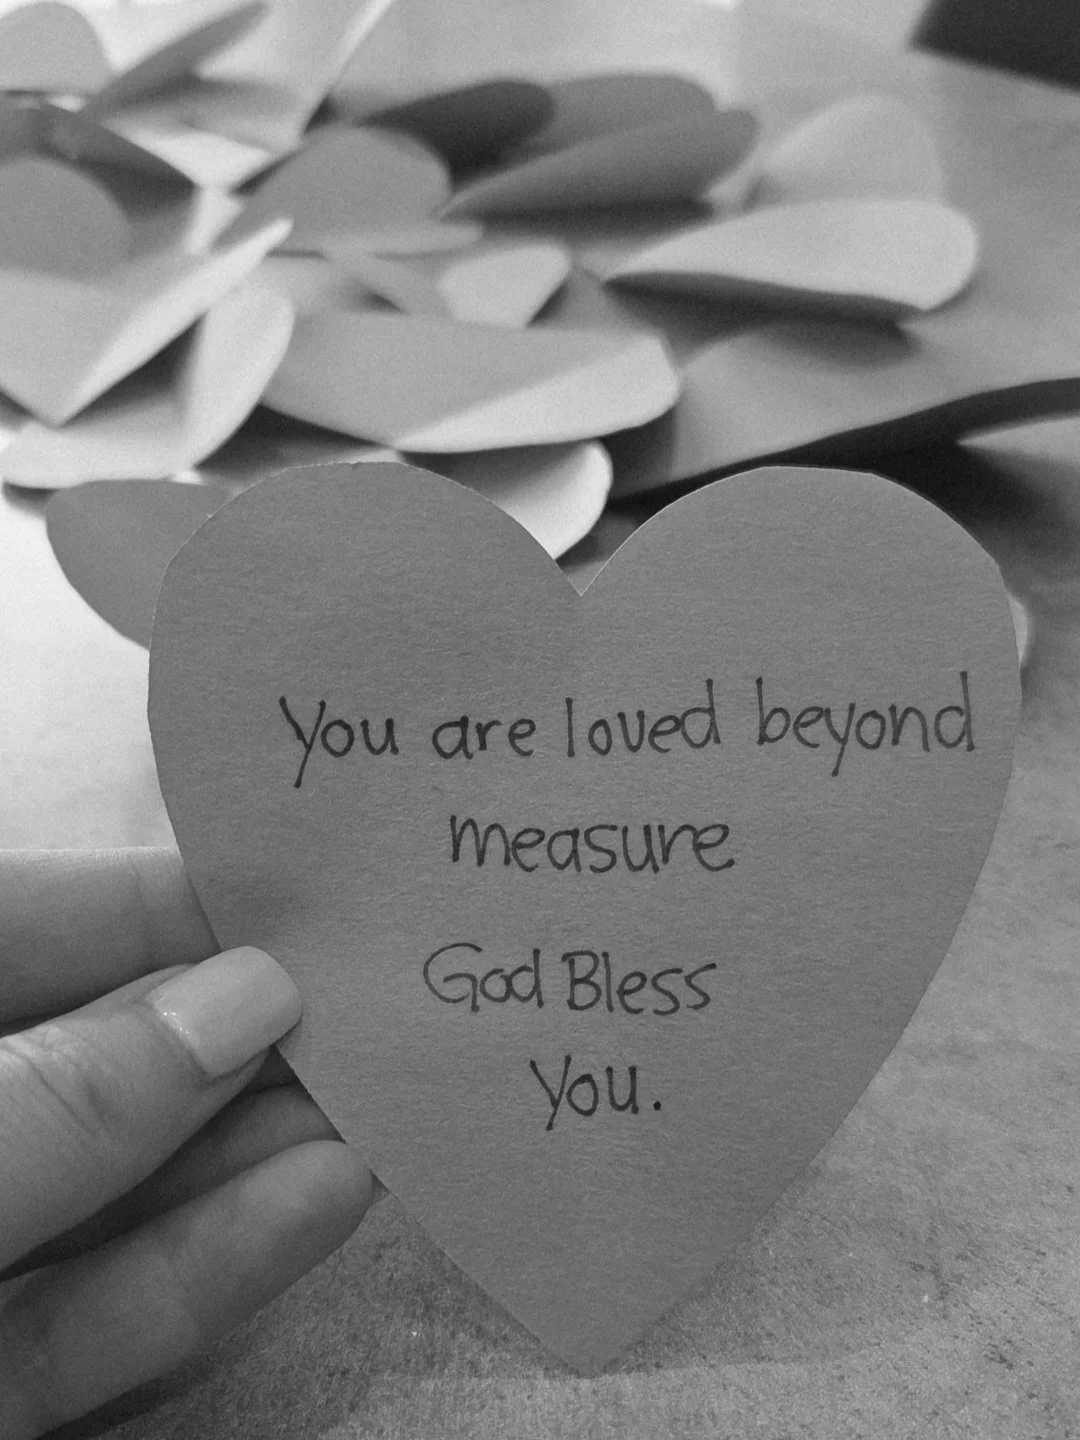 You are loved beyond
measure
God Bless
You.